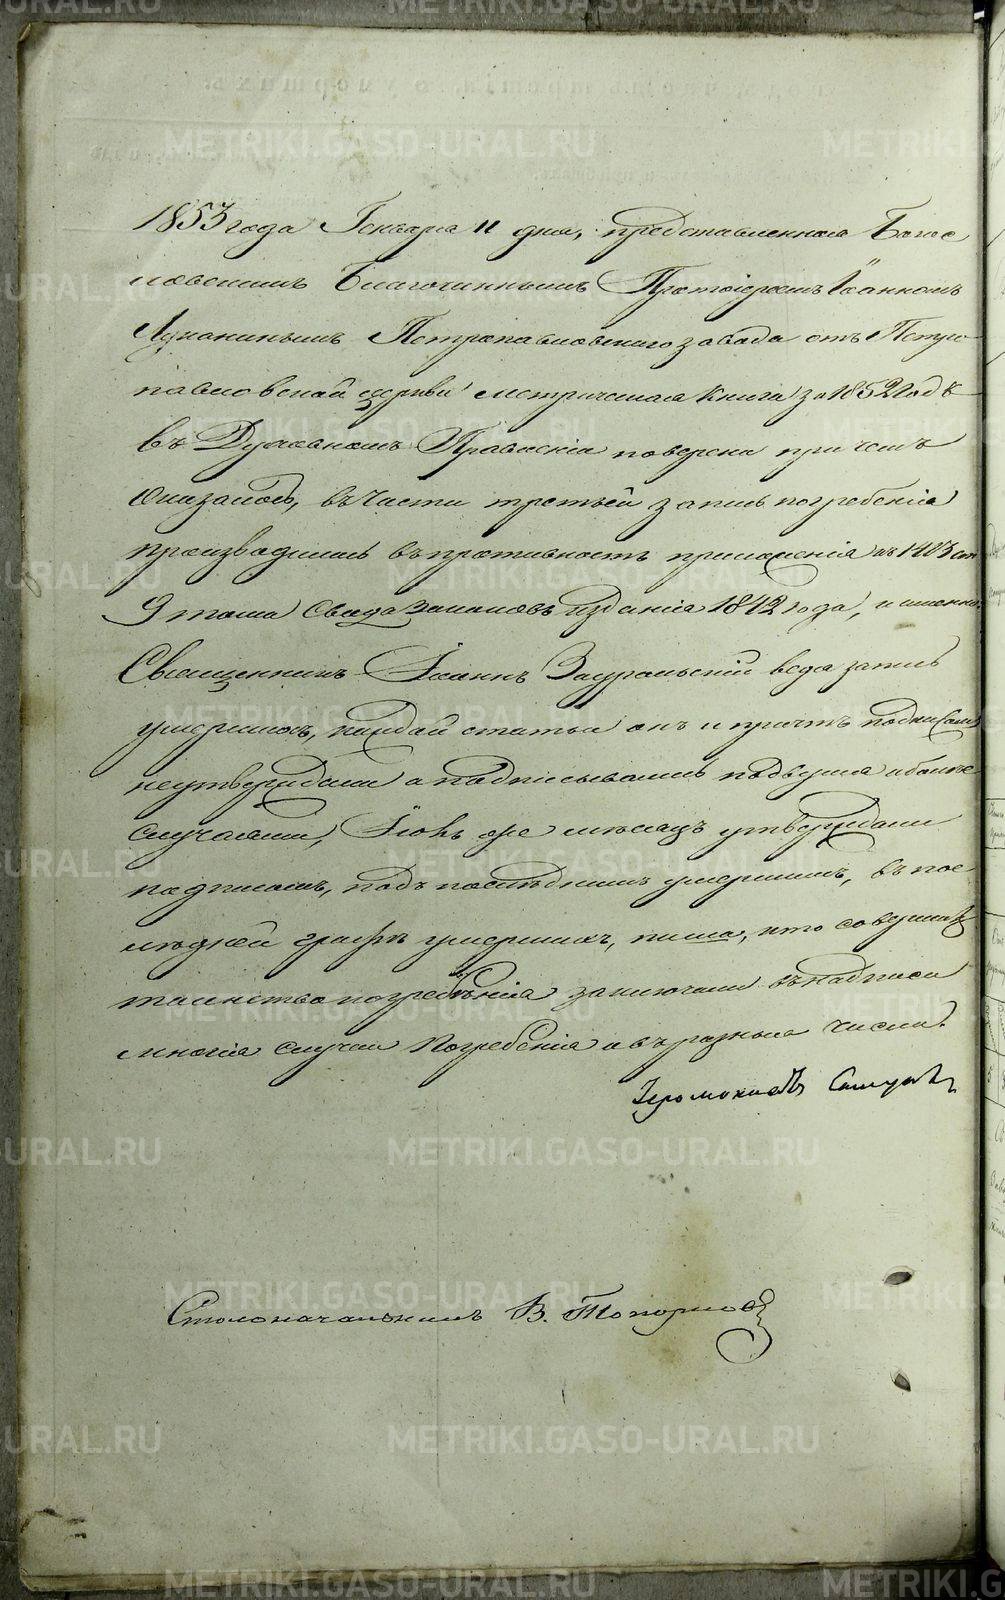 1853 года Генваря 11 дня, представленная Богос
ловскимъ Благочиннымъ Протоіереемъ Іоанномъ
Петропавловскаго завода отъ Петро
павловской церкви метрическая книга за 1852 годъ
въ Духовномъ Правленіи поверена при чемъ
оказалось, въ части третьей запись погребенія
производилась въ противность приложенія къ 1403 ст
9 тома Свода Законовъ изданія 1842 года, и именно
Священникъ Іоаннъ Зауральскій ведя запись
умершихъ, каждой статьи онъ и причтъ подписами
неутверждали а подписывались подъ двумя и более
случаями, Іюнь же месяцъ утверждали
подписомъ, подъ последнимъ умершимъ, въ пос
ледней графе умершихъ, пиша, кто совершалъ
таинство погребенія заключали въ надписи
многія случаи погребенія и въ разныя числа.
Іеромонахъ
Столоначальникъ В. Топорковъ
METRIKI.GASO-URAL.RU